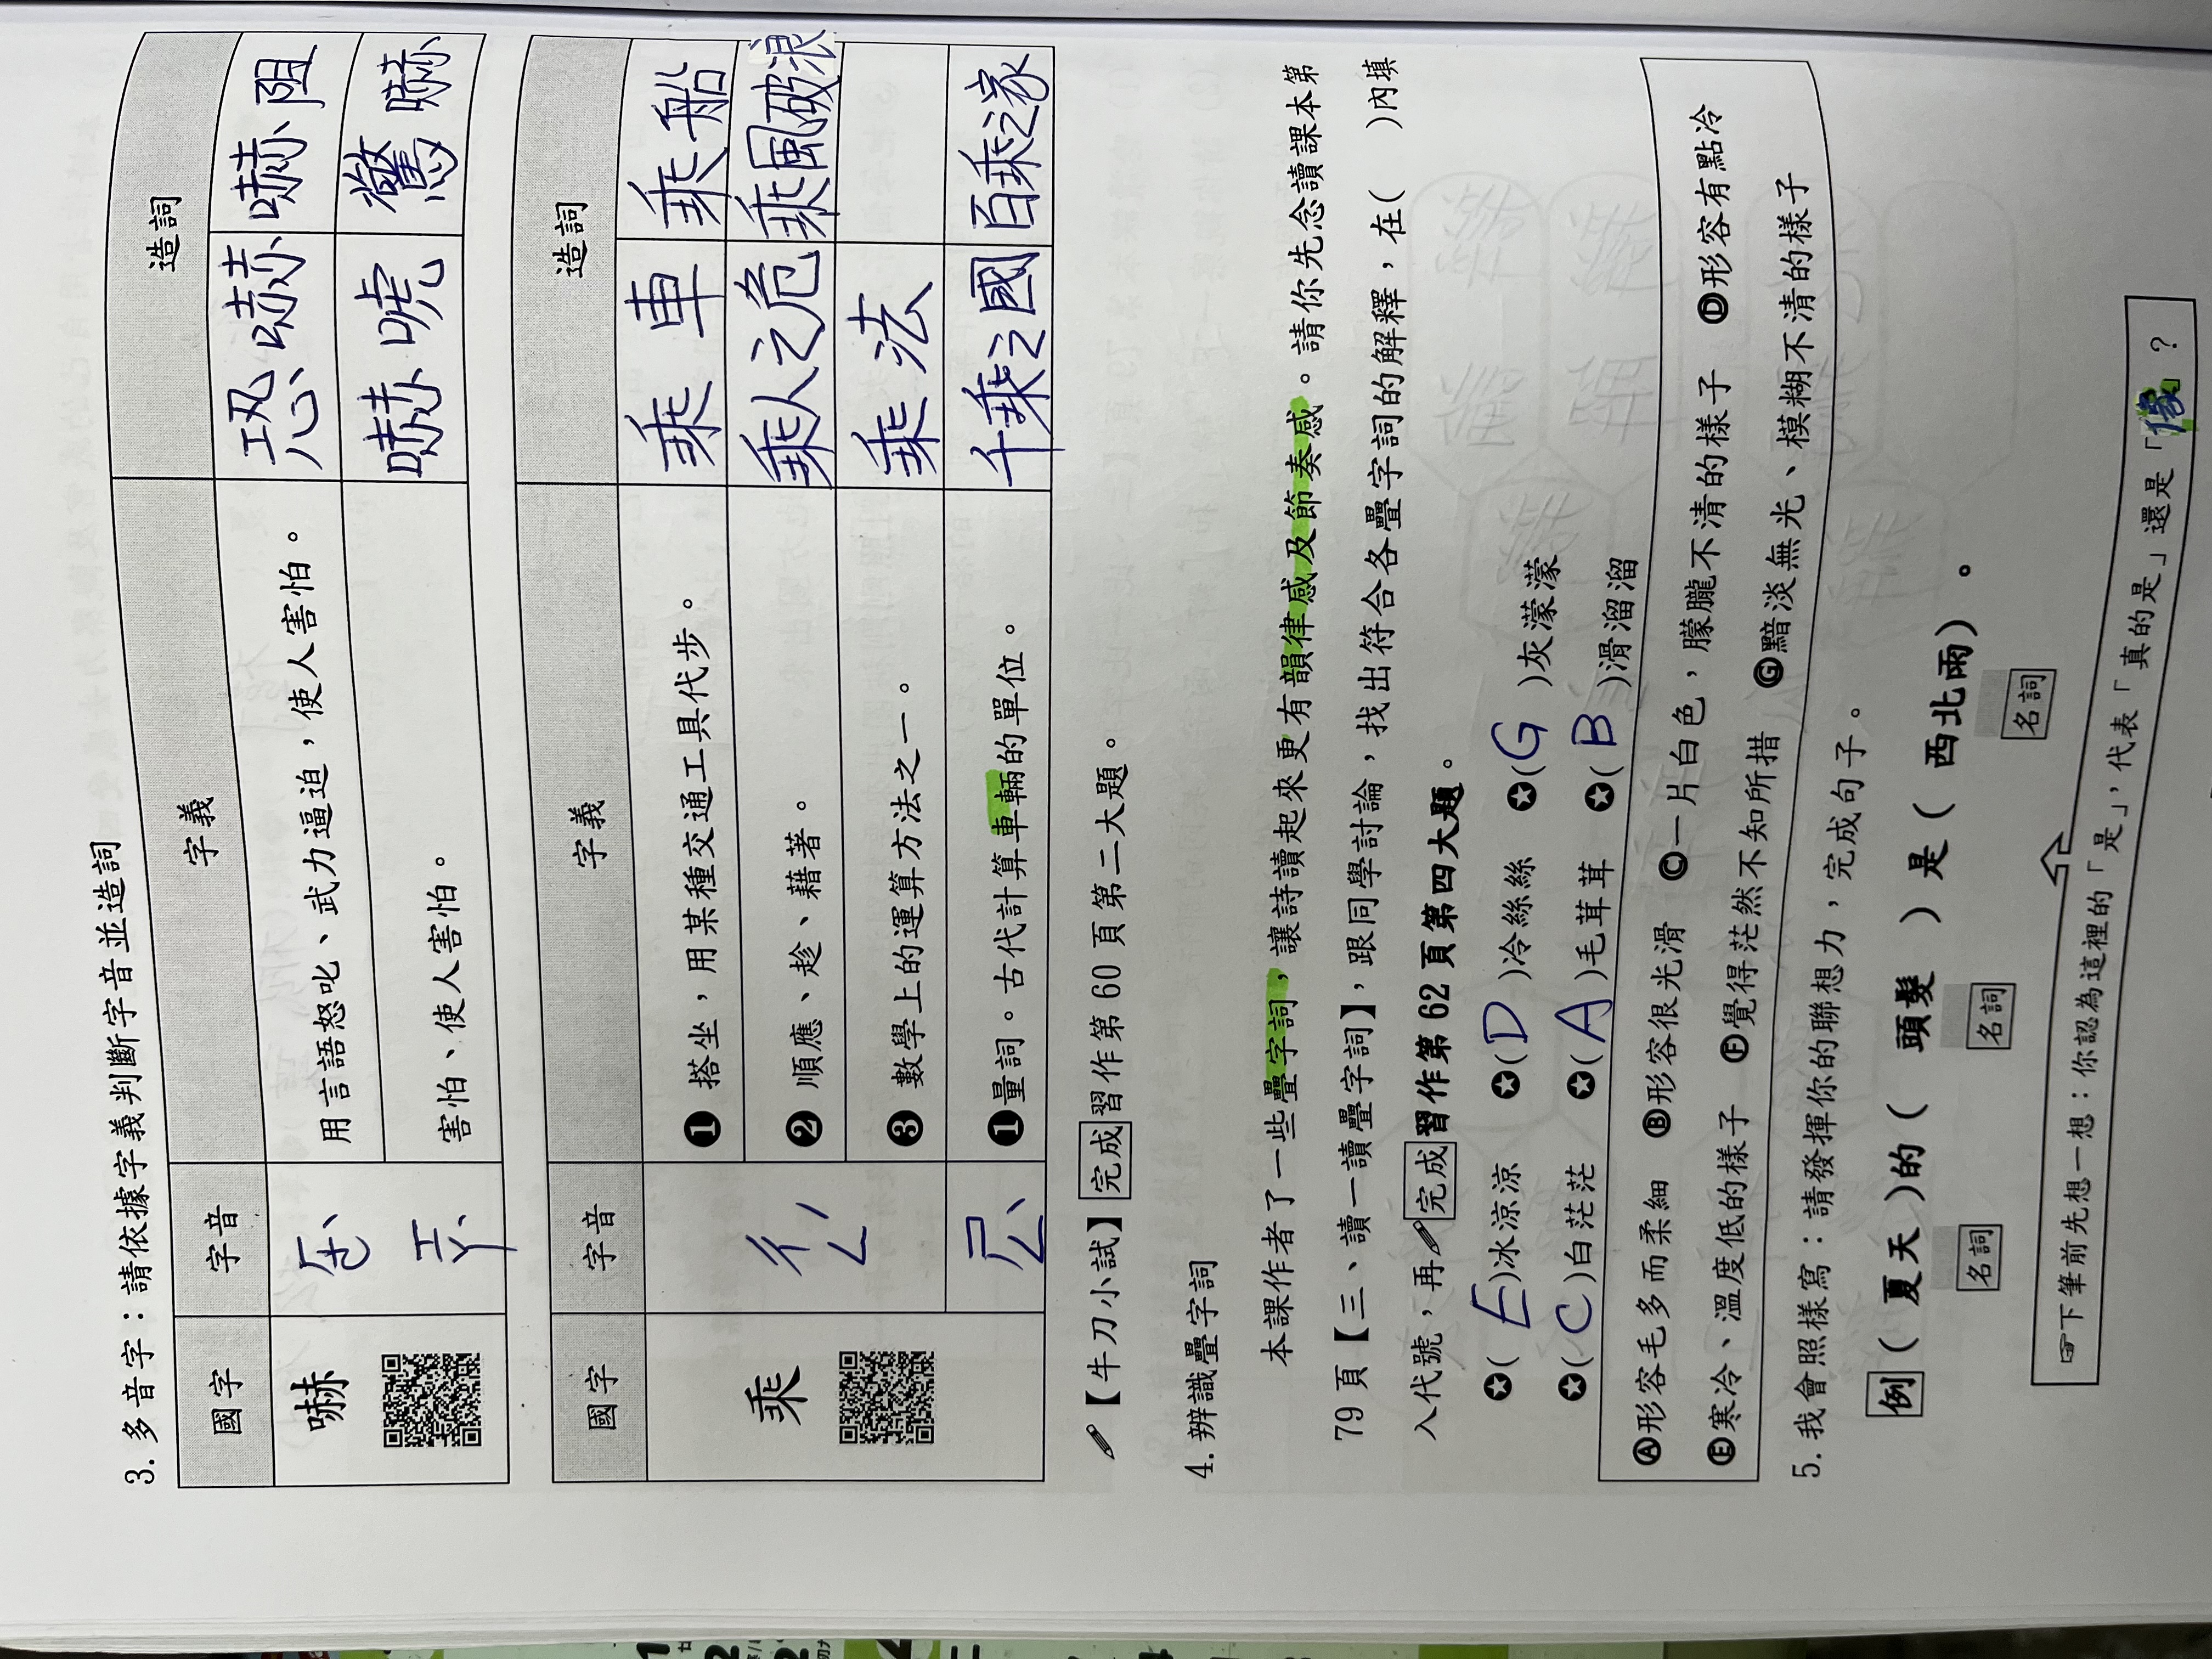 3. 多音字：請依據字義判斷字音並造詞
國字 字音 字義 造詞
嚇 ㄏㄜˋ 用言語怒叱、武力逼迫，使人害怕。 恐嚇 嚇阻
ㄒㄧㄚˋ 害怕、使人害怕。 嚇唬 驚嚇
國字 字音 字義 造詞
乘 ㄔㄥˊ ❶ 搭坐，用某種交通工具代步。 乘車 乘船
❷ 順應、趁、藉著。 乘人之危 乘風破浪
❸ 數學上的運算方法之一。 乘法
ㄕㄥˋ ❶量詞。古代計算車輛的單位。 千乘之國 百乘之家
【牛刀小試】完成習作第 60 頁第二大題。
4. 辨識疊字詞
本課作者了一些疊字詞，讓詩讀起來更有韻律感及節奏感。請你先念讀課本第
79 頁【三、讀一讀疊字詞】，跟同學討論，找出符合各疊字詞的解釋，在( )內填
入代號，再完成習作第 62 頁第四大題。
✪( E )冰涼涼 ✪( D )冷絲絲 ✪( G )灰濛濛
✪( C )白茫茫 ✪( A )毛茸茸 ✪( B )滑溜溜
Ⓐ形容毛多而柔細 Ⓑ形容很光滑 Ⓒ一片白色，朦朧不清的樣子 Ⓓ形容有點冷
Ⓔ寒冷、溫度低的樣子 Ⓕ覺得茫然不知所措 Ⓖ黯淡無光、模糊不清的樣子
5. 我會照樣寫：請發揮你的聯想力，完成句子。
例（ 夏天 ）的（ 頭髮 ）是（ 西北雨）。
名詞 名詞 名詞
☞下筆前先想一想：你認為這裡的「是」，代表「真的是」還是「像」？